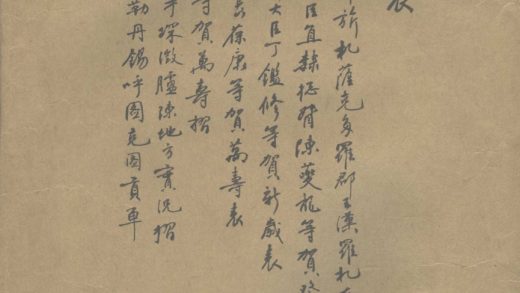 表
旂札薩克多羅郡王漢羅札
臣直隸總督陳夔龍等賀
大臣丁鑑修等賀新歲表
葆康等賀萬壽表
等賀萬壽摺
琛澂臚陳地方實況摺
勒丹錫呼圖克圖貢單